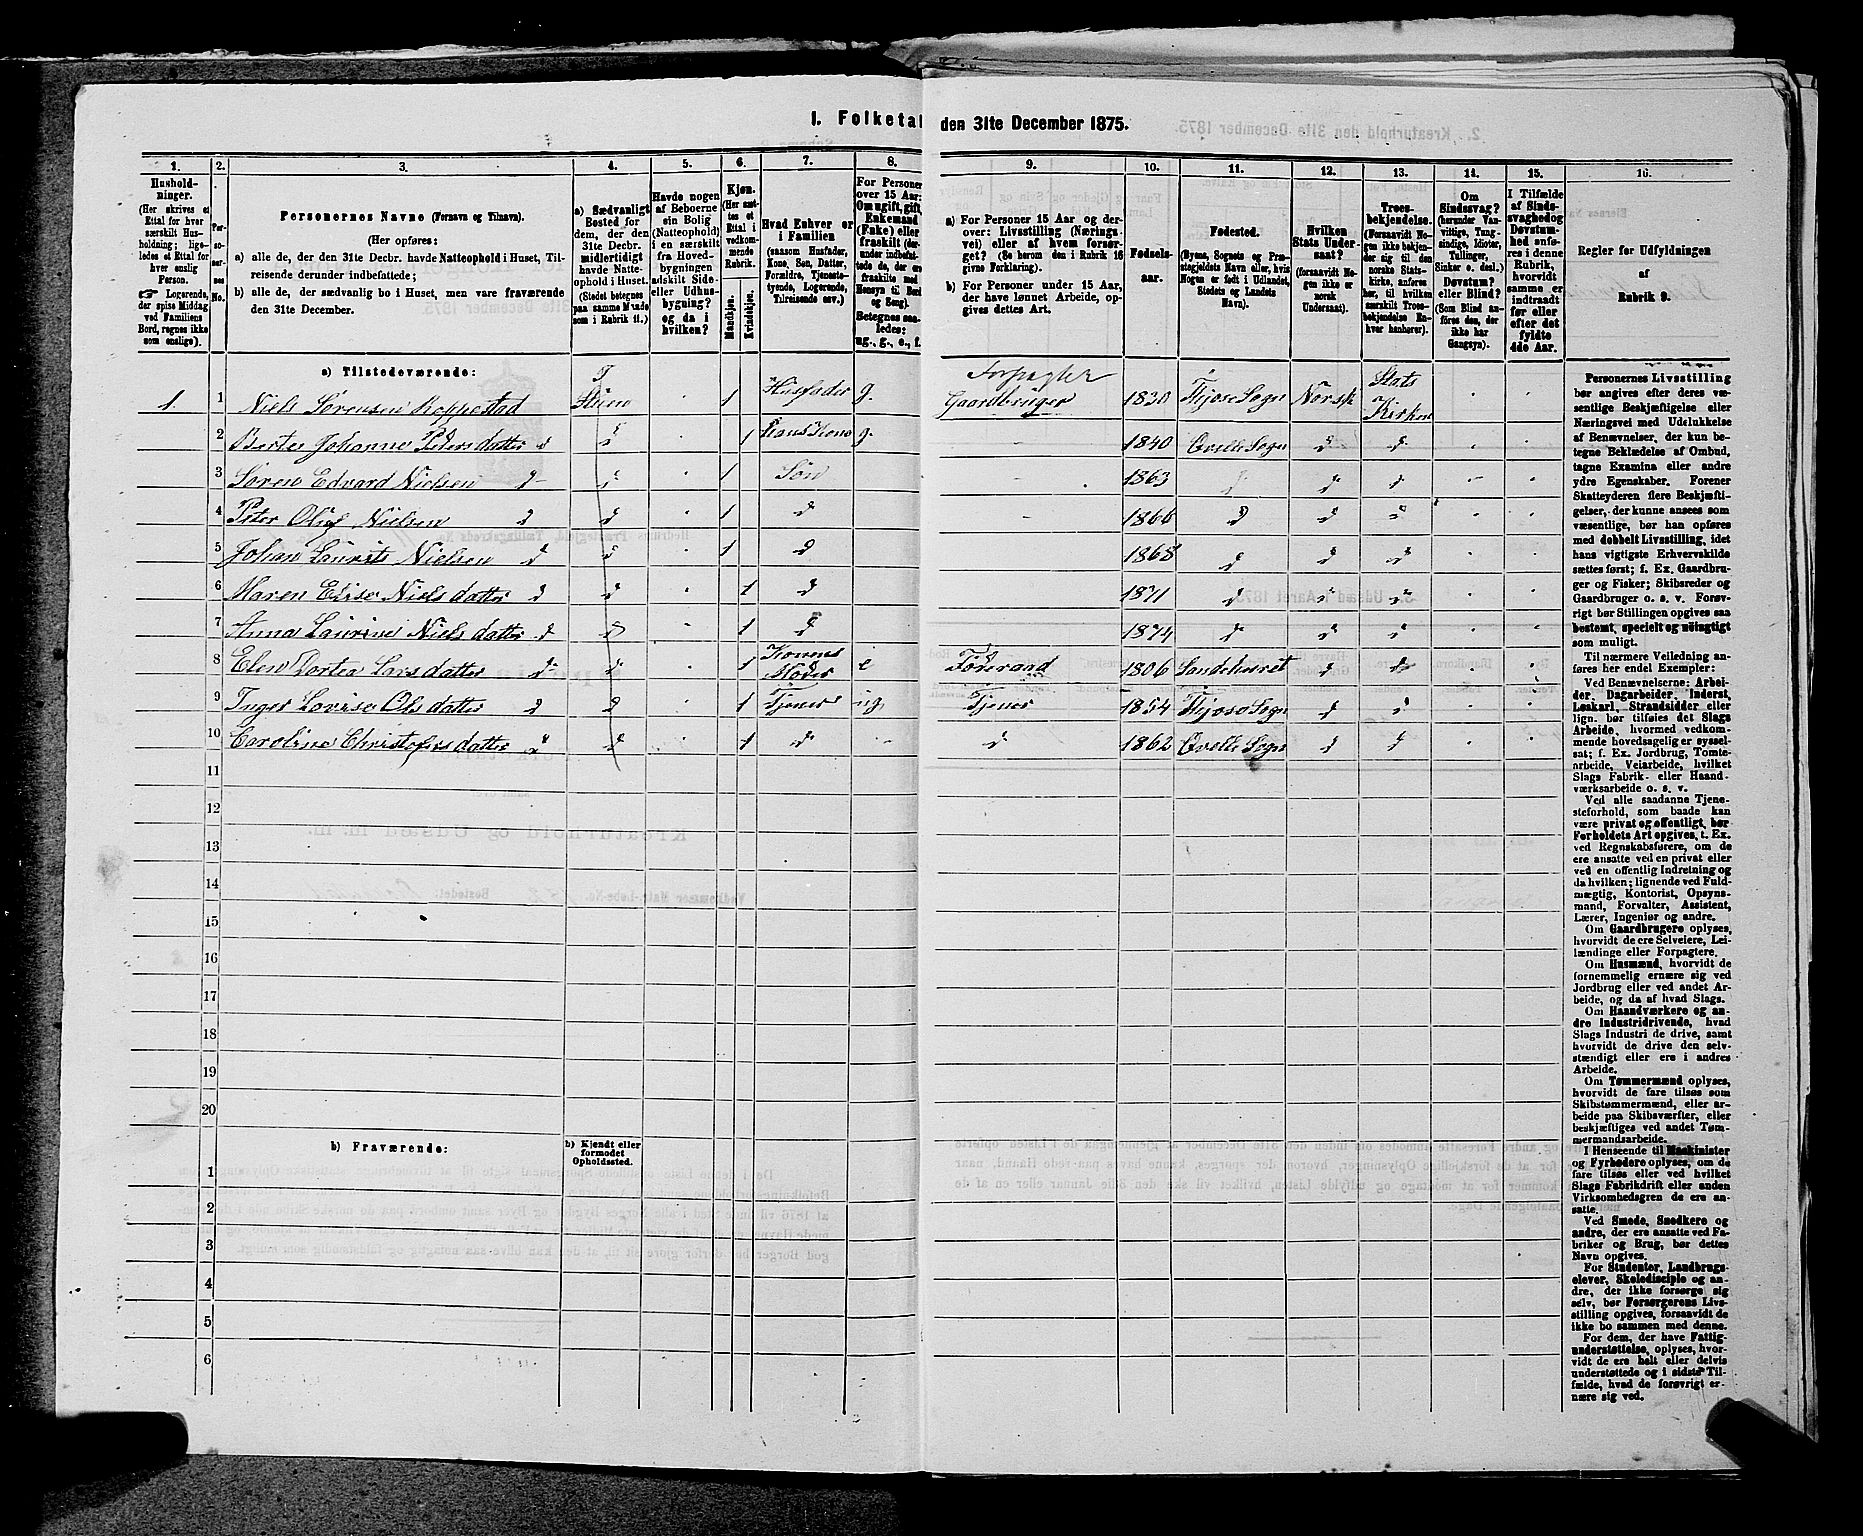 I. Folketal den 31te December 1875.
1. 2. 3. 4. 5. 6. 7. 8. 9. 10. 11. 12. 13. 14. 15. 16.
Hushold-
ninger.
(Her skrives et
Ettal for hver
særskilt Hus-
holdning; lige-
ledes et Ettal for
hver enslig
Person.
☞ Logerende,
der spise Middag
ved Familiens
Bord, regnes ikke
som enslige).
Personernes Navne (Fornavn og Tilnavn).
(Her opføres:
a) alle de, der den 31te Decbr. havde Natteophold i Huset, Til-
reisende derunder indbefattede;
b) alle de, der sædvanlig bo i Huset, men vare fraværende
den 31te December.
a) Sædvanligt
Bosted for
dem, der den
31te Decbr.
midlertidigt
havde Natte-
ophold i Huset.
(Stedet betegnes
paa samme Maade
som i Rubrik 11.)
Havde nogen
af Beboerne
sin Bolig
(Natteophold)
i en særskilt
fra Hoved-
bygningen
adskilt Side-
eller Udhus-
bygning?
og da i
hvilken?
Kjøn.
(Her sæt-
tes et
Ettal i
vedkom-
mende
Rubrik.
Mandkjøn.
Kvindekjøn.
Hvad Enhver er
i Familien
(saasom Husfader,
Kone, Søn, Datter,
Forældre, Tjeneste-
tyende, Logerende,
Tilreisende osv.)
For Personer
over 15 Aar:
Om ugift, gift,
Enkemand
(Enke) eller
fraskilt (der-
under indbefat-
tede de, der ere
fraskilte med
Hensyn til Bord
og Seng).
Betegnes saa-
ledes:
ug., g., e., f.
a) For Personer 15 Aar og der-
over: Livsstilling (Nærings-
vei) eller af hvem forsør-
get? (Se herom den i Rubrik 16
givne Forklaring).
b) For Personer under 15 Aar,
der have lønnet Arbeide, op-
gives dettes Art.
Fødsels-
aar.
Fødested.
(Byens, Sognets og Præs-
tegjeldets Navn eller, hvis
Nogen er født i Udlandet,
Stedets og Landets
Navn).
Hvilken
Stats Under-
saat?
(forsaavidt No-
gen ikke er
norsk
Undersaat).
Troes-
bekjendelse.
(Forsaavidt No-
gen ikke bekjen-
der sig til den
norske Stats-
kirke, anføres
her, til hvilken
særskilt Troes-
bekjendelse En-
hver henhører).
Om
Sindssvag?
(herunder Van-
vittige, Tung-
sindige, Idioter,
Tullinger,
Sinker o. desl.)
Døvstum?
eller Blind?
(Som Blind an-
føres den, der
ikke har
Gangsyn).
I Tilfælde
af Sinds-
svaghed og
Døvstum-
hed anfø-
res i denne
Rubrik,
hvorvidt
samme er
indtraadt
før eller
efter det
fyldte
4de Aar.
Regler for Udfyldningen
af
Rubrik 9.
a) Tilstedeværende:
1. 1 Niels Sørensen Roppestad 1 Husfader g. Forpagter Gaardbruger 1830 Tjose Sogn Norsk Stats Kirken
2 Berte Johanne Pedersdatter d d 1 Hans Kone g. 1840 Qvelle Sogn d d
3 Søren Edvard Nielsen d d 1 Søn 1863 d d d
4 Peter Oluf Nielsen d d 1 d 1866 d d d
5 Johan Laurits Nielsen d d 1 d 1868 d d d
6 Maren Elise Nielsdatter d d 1 d 1871 d d d
7 Anna Laurine Nielsdatter d d 1 d 1874 d d d
8 Elen Dortea Larsdatter d d 1 Konens Moder e Føderaad 1806 Sandeherret d d
9 Inger Lovise Olsdatter d d 1 Tjener ug. Tjener 1854 Tjose Sogn d d
10 Caroline Christofersdatter d d 1 d d 1862 Qvelle Sogn d d
11
12
13
14
15
16
17
18
19
20
b) Fraværende:
b) Kjendt eller
formodet
Opholdssted.
1
2
3
4
5
6
Personernes Livsstilling
bør angives efter deres væ-
sentlige Beskjæftigelse eller
Næringsvei med Udelukkelse
af Benævnelser, der kun be-
tegne Beklædelse af Ombud,
tagne Examina eller andre
ydre Egenskaber. Forener
Skatteyderen flere Beskjæfti-
gelser, der kunne ansees som
væsentlige, bør han opføres
med dobbelt Livsstilling, idet
hans vigtigste Erhvervskilde
sættes først; f. Ex. Gaardbru-
ger og Fisker; Skibsreder og
Gaardbruger o. s. v. Forøv-
rigt bør Stillingen opgives saa
bestemt, specielt og nøiagtigt
som muligt.
Til nærmere Veiledning an-
føres her endel Exempler:
Ved Benævnelserne: Arbei-
der, Dagarbeider, Inderst,
Løskarl, Strandsidder eller
lign. bør tilføies det Slags
Arbeide, hvormed vedkom-
mende hovedsagelig er syssel-
sat; f. Ex. Jordbrug, Tomte-
arbeide, Veiarbeide, hvilket
Slags Fabrik- eller Haand-
værksarbeide o. s. v.
Ved alle saadanne Tjene-
steforhold, som baade kan
være privat og offentligt, bør
Forholdets Art opgives, t. Ex.
ved Regnskabsførere, om de
ere ansatte ved en privat eller
ved en offentlig Indretning og
da hvilken; lignende ved Fuld-
mægtig, Kontorist, Opsyns-
mand, Forvalter, Assistent,
Lærer, Ingeniør og andre.
Om Gaardbrugere oplyses,
hvorvidt de ere Selveiere, Lei-
lændinge eller Forpagtere.
Om Husmænd, hvorvidt de
fornemmelig ernære sig ved
Jordbrug eller ved andet Ar-
beide, og da af hvad Slags.
Om Haandværkere og an-
dre Industridrivende, hvad
Slags Industri de drive, samt
hvorvidt de drive den selv-
stændigt eller ere i andres
Arbeide.
Om Tømmermænd oplyses,
hvorvidt de fare tilsøs som
Skibstømmermænd, eller ar-
beide paa Skibsværfter, eller
beskjæftiges ved andet Tøm-
mermandsarbeide.
I Henseende til Maskinister
og Fyrbødere oplyses, om de
fare tilsøs eller ved hvilket
Slags Fabrikdrift eller anden
Virksomhedsgren de ere an-
satte.
Ved Smede, Snedkere og
andre, der ere ansatte ved Fa-
briker og Brug, bør dettes
Navn opgives.
For Studenter, Landbrugs-
elever, Skoledisciple og an-
dre, der ikke forsørge sig
selv, bør Forsørgerens Livs-
stilling opgives, forsaavidt de
ikke bo sammen med denne.
For dem, der have Fattig-
understøttelse, oplyses, hvor-
vidt de ere helt eller delvis
understøttede og i sidste Til-
fælde, hvad de forøvrigt er-
nære sig ved.